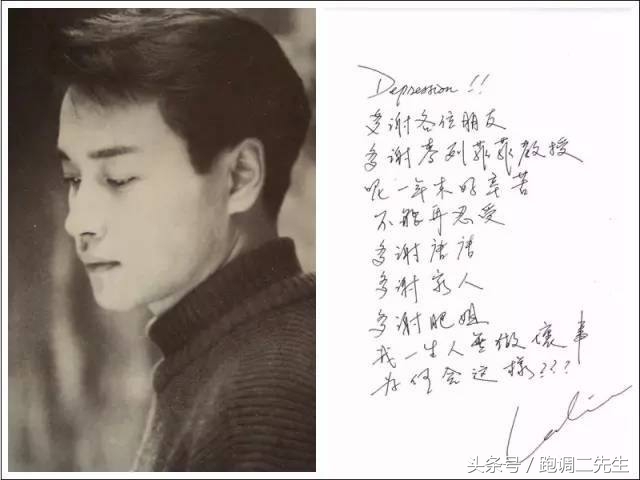 Depression!!
多谢各位朋友
多谢麦列菲菲教授
呢一年来好辛苦
不能再忍受
多谢唐唐
多谢家人
多谢肥姐
我一生人无做壞事
为何会这樣???
Leslie
头条号 / 跑调二先生